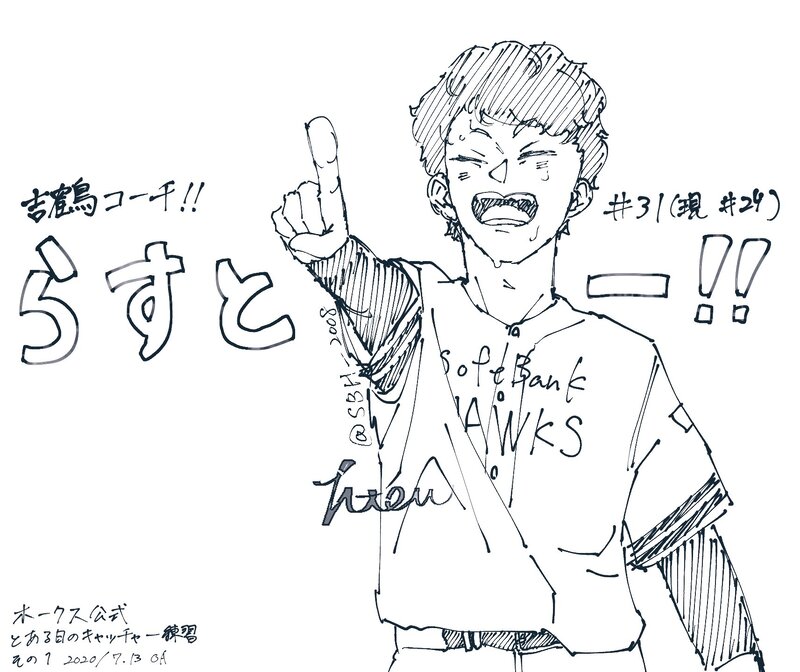 吉鶴コーチ!!
#31(現 #24)
らすとー!!
SoftBank
HAWKS
@SBH_2008
ホークス公式
とある日のキャッチャー練習
その1 2020/7.13 OA